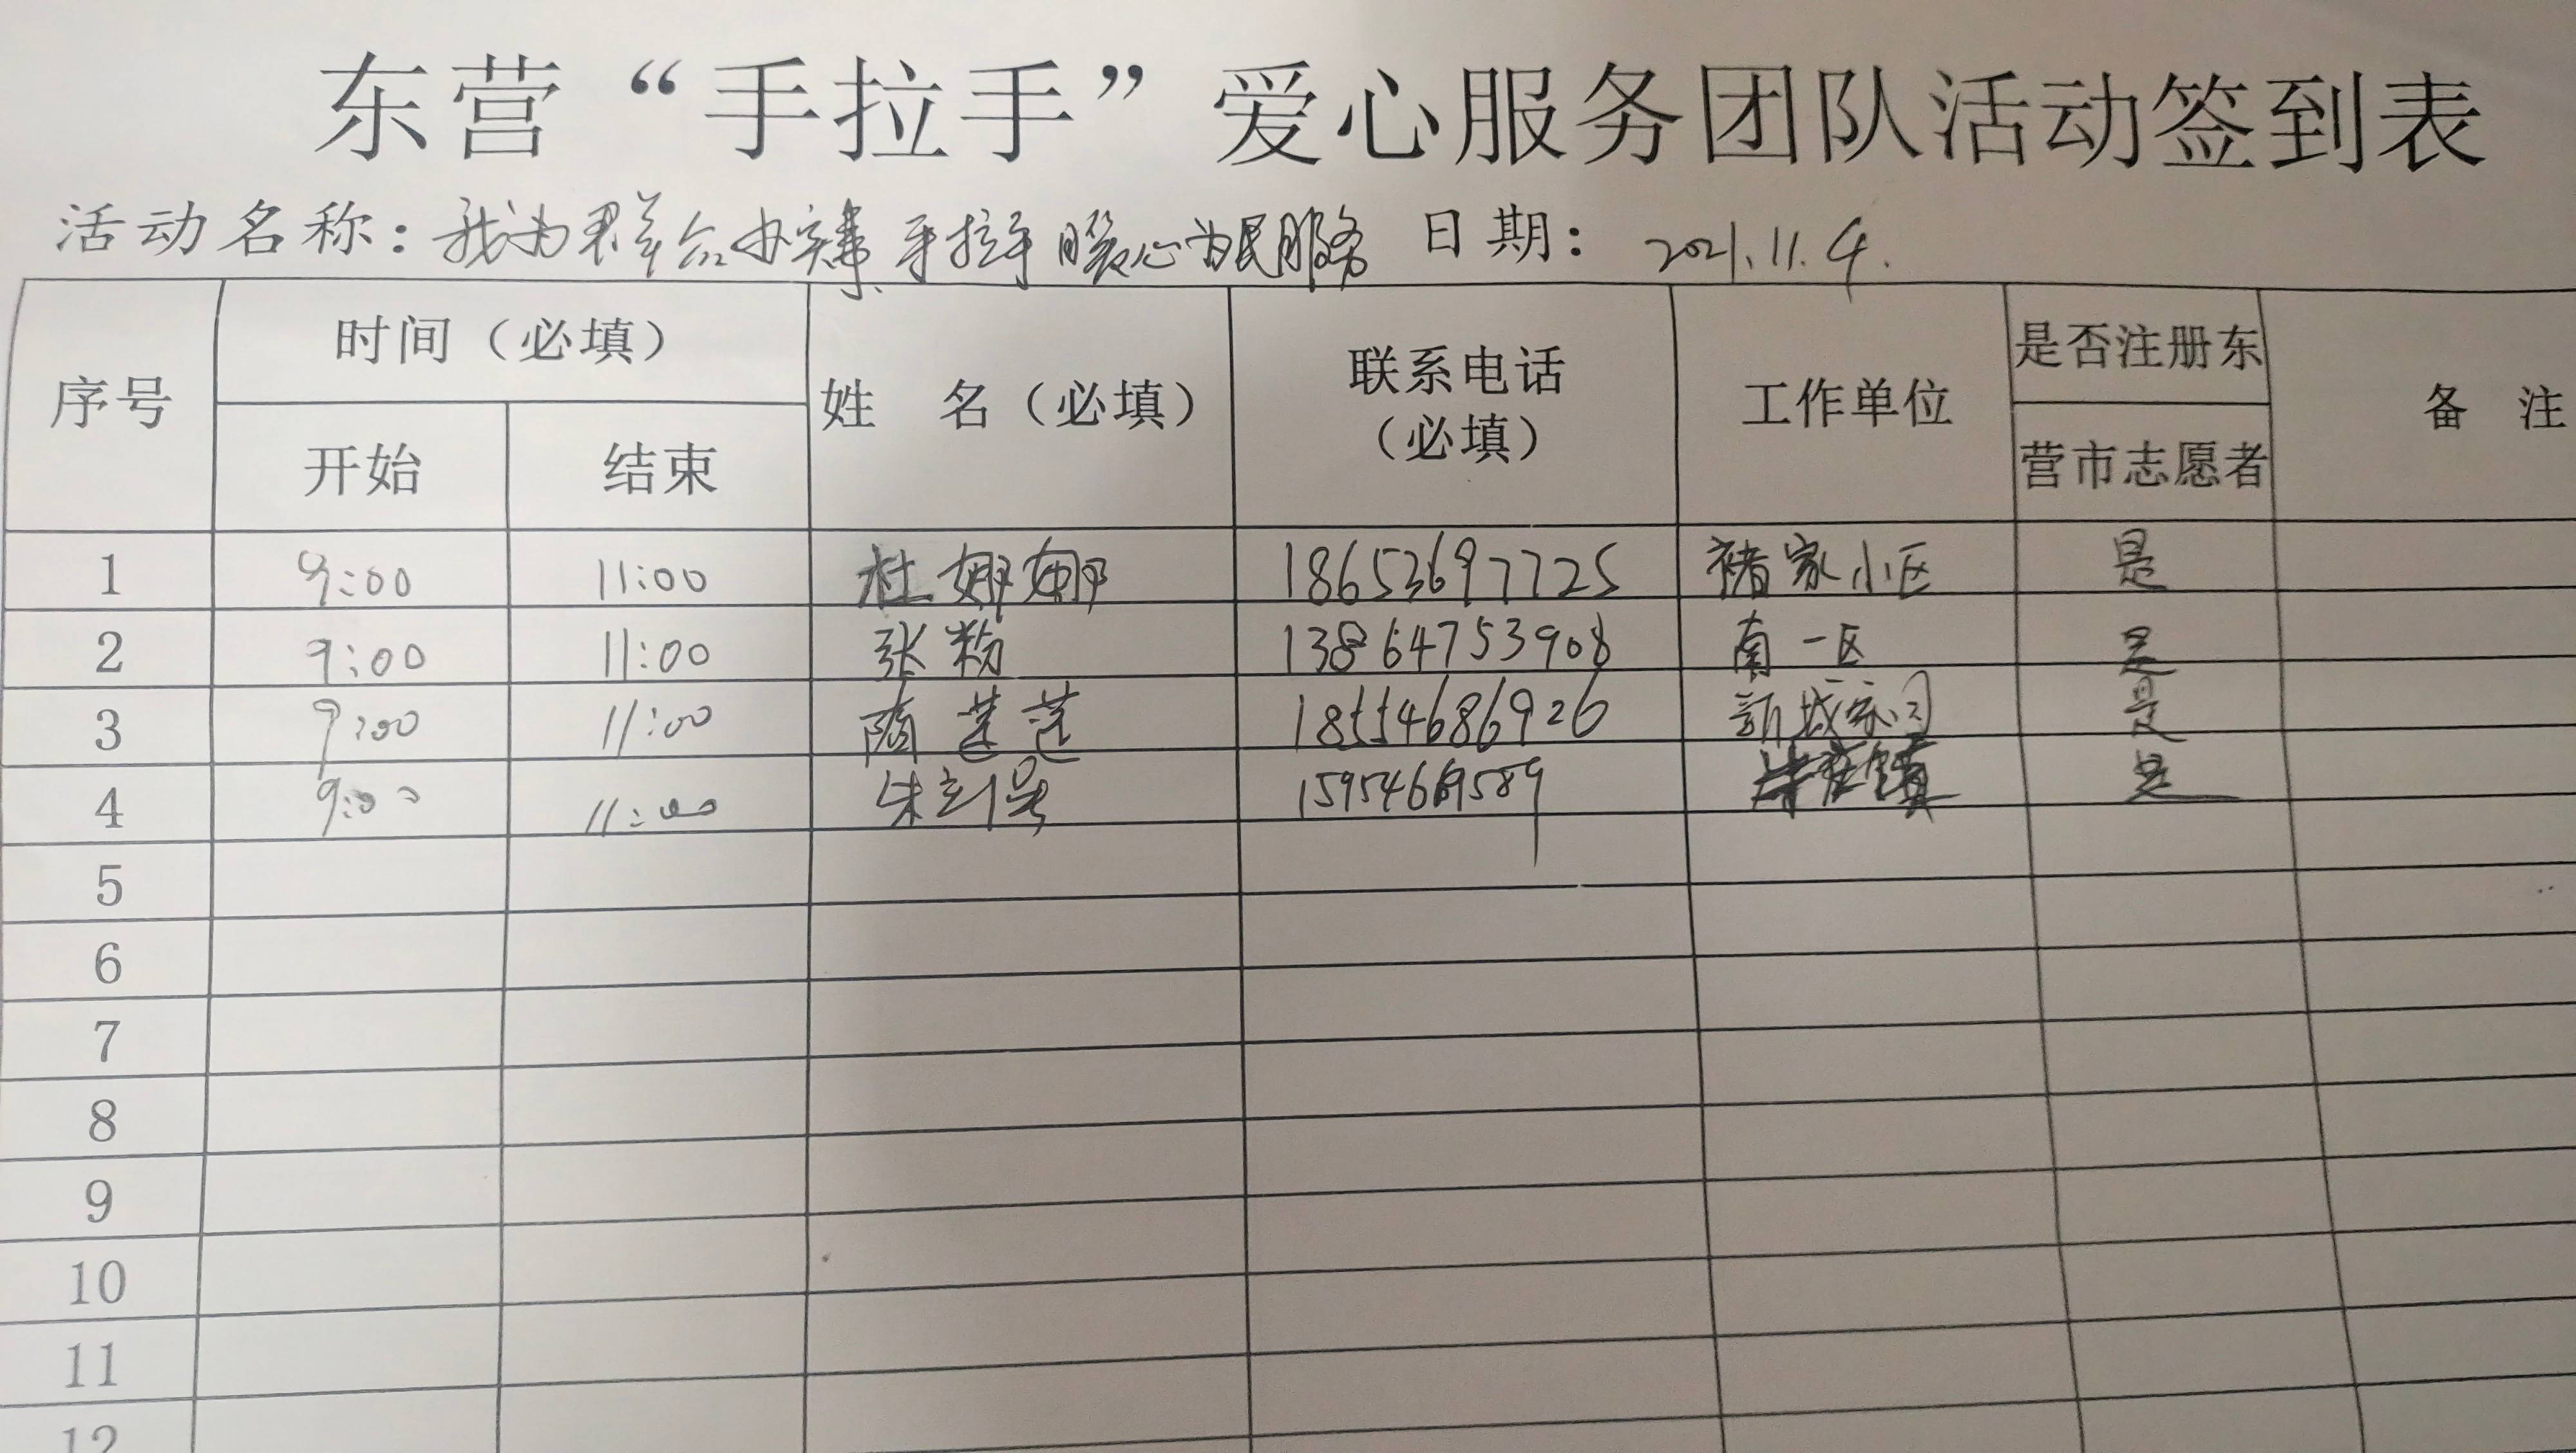 东营“手拉手”爱心服务团队活动签到表
活动名称：我为群众办实事 手拉手 暖心为民服务 日期：2021.11.4.
序号 时间（必填） 姓 名（必填） 联系电话（必填） 工作单位 是否注册东营市志愿者 备 注
开始 结束
1 9:00 11:00 杜娜娜 18653697725 褚家小区 是
2 9:00 11:00 张粉 13864753908 南一区 是
3 9:00 11:00 隋莲莲 18554686926 新城 是
4 9:00 11:00 朱 是
5
6
7
8
9
10
11
12